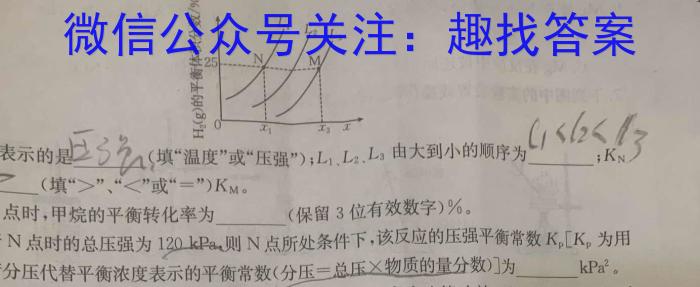 微信公众号关注：趣找答案
H₂(g)的平衡体积分数/%
25
N
M
0
x₁
x₃
x
表示的是 压强 (填“温度”或“压强”)；L₁、L₂、L₃ 由大到小的顺序为 L₁<L₂<L₃ ；K_N
(填“>”、“<”或“=”)K_M。
点时,甲烷的平衡转化率为 (保留 3 位有效数字)%。
N 点时的总压强为 120 kPa,则 N 点所处条件下,该反应的压强平衡常数 Kₚ[Kₚ 为用
分压代替平衡浓度表示的平衡常数(分压=总压×物质的量分数)]为 kPa²。